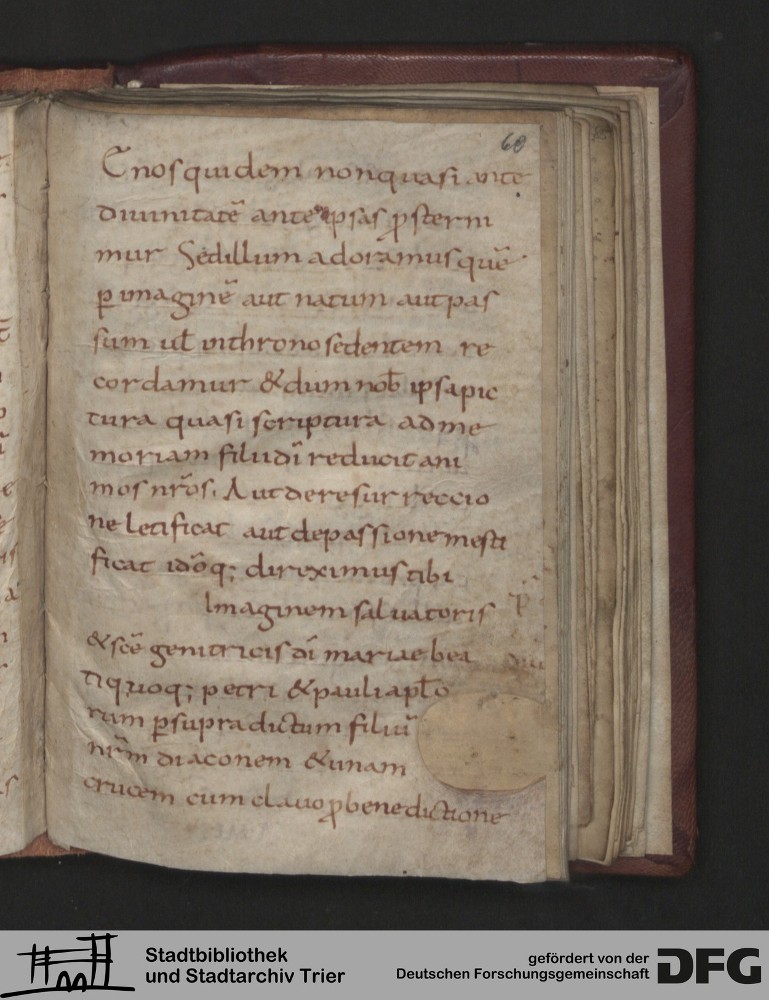 60
Et nos quidem non quasi ante
diuinitatē ante ipsas ꝓsterni
mur Sed illum adoramus quē
ꝑ imaginē aut natum aut pas
sum ul̄ inthrono sedentem re
cordamur & dum nob̄ ipsa pic
tura quasi scriptura ad me
moriam filii dī reducit ani
mos nr̄os. Aut de resurreccio
ne letificat aut de passione mesti
ficat idōq; direximus tibi
Imaginem saluatoris
& scē genitricis dī mariae bea
ti quoq; petri & pauli apl̄o
rum ꝑ supradictum filiū
nr̄m diaconem & unam
crucem cum clauo ꝓ benedictione
Stadtbibliothek
und Stadtarchiv Trier
gefördert von der
Deutschen Forschungsgemeinschaft
DFG